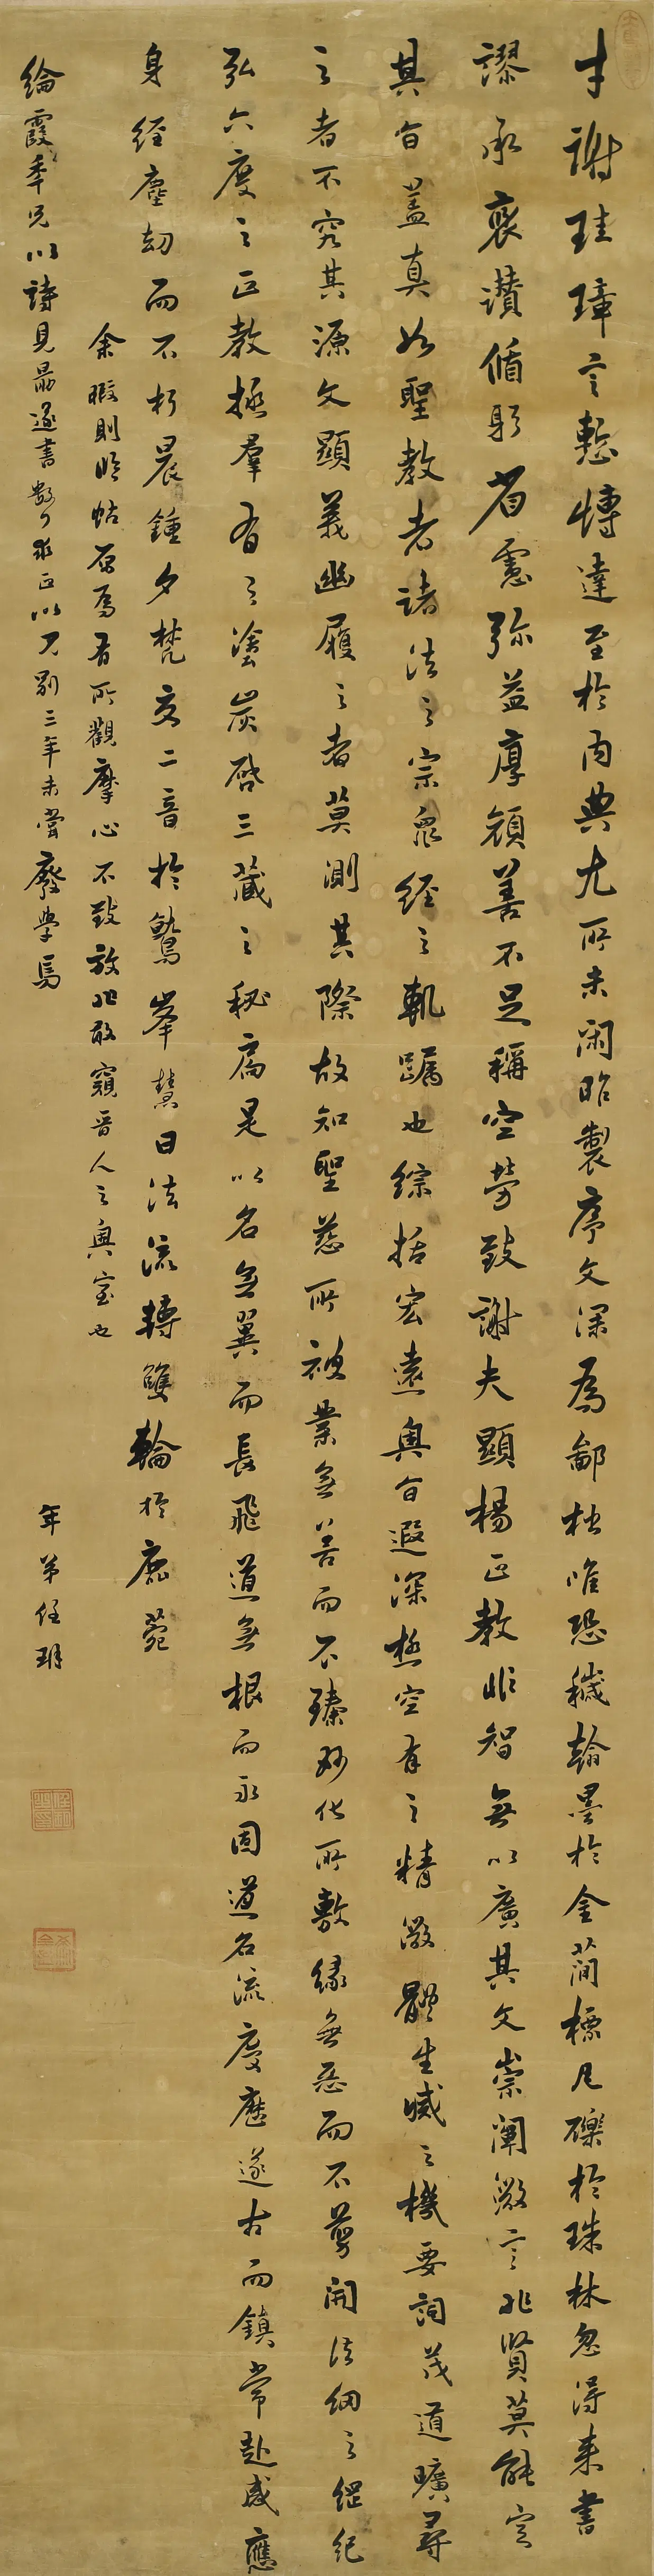 才謝珪璋言慙博達至於內典尤所未閑昨製序文深為鄙拙唯恐穢翰墨於金簡標瓦礫於珠林忽得來書
謬承褒讚循躬省慮弥益厚顏善不足稱空勞致謝夫顯楊正教非智無以廣其文崇闡微言非賢莫能定
其旨蓋真如聖教者諸法之宗眾經之軌躅也綜括宏遠奧旨遐深極空有之精微體生滅之機要詞茂道曠尋
之者不究其源文顯義幽履之者莫測其際故知聖慈所被業無善而不臻妙化所敷緣無惡而不翦開法網之綱紀
弘六度之正教拯羣有之塗炭啓三藏之秘扃是以名無翼而長飛道無根而永固道名流慶歷遂古而鎮常赴感應
身經塵劫而不朽晨鍾夕梵交二音於鷲峯慧日法流轉雙輪於鹿菀
余暇則臨帖原為有所觀摩心不致放非敢窺晉人之奧室也
綸霞年兄以詩見勗遂書數行求正以不別三年未嘗廢學焉
年弟任